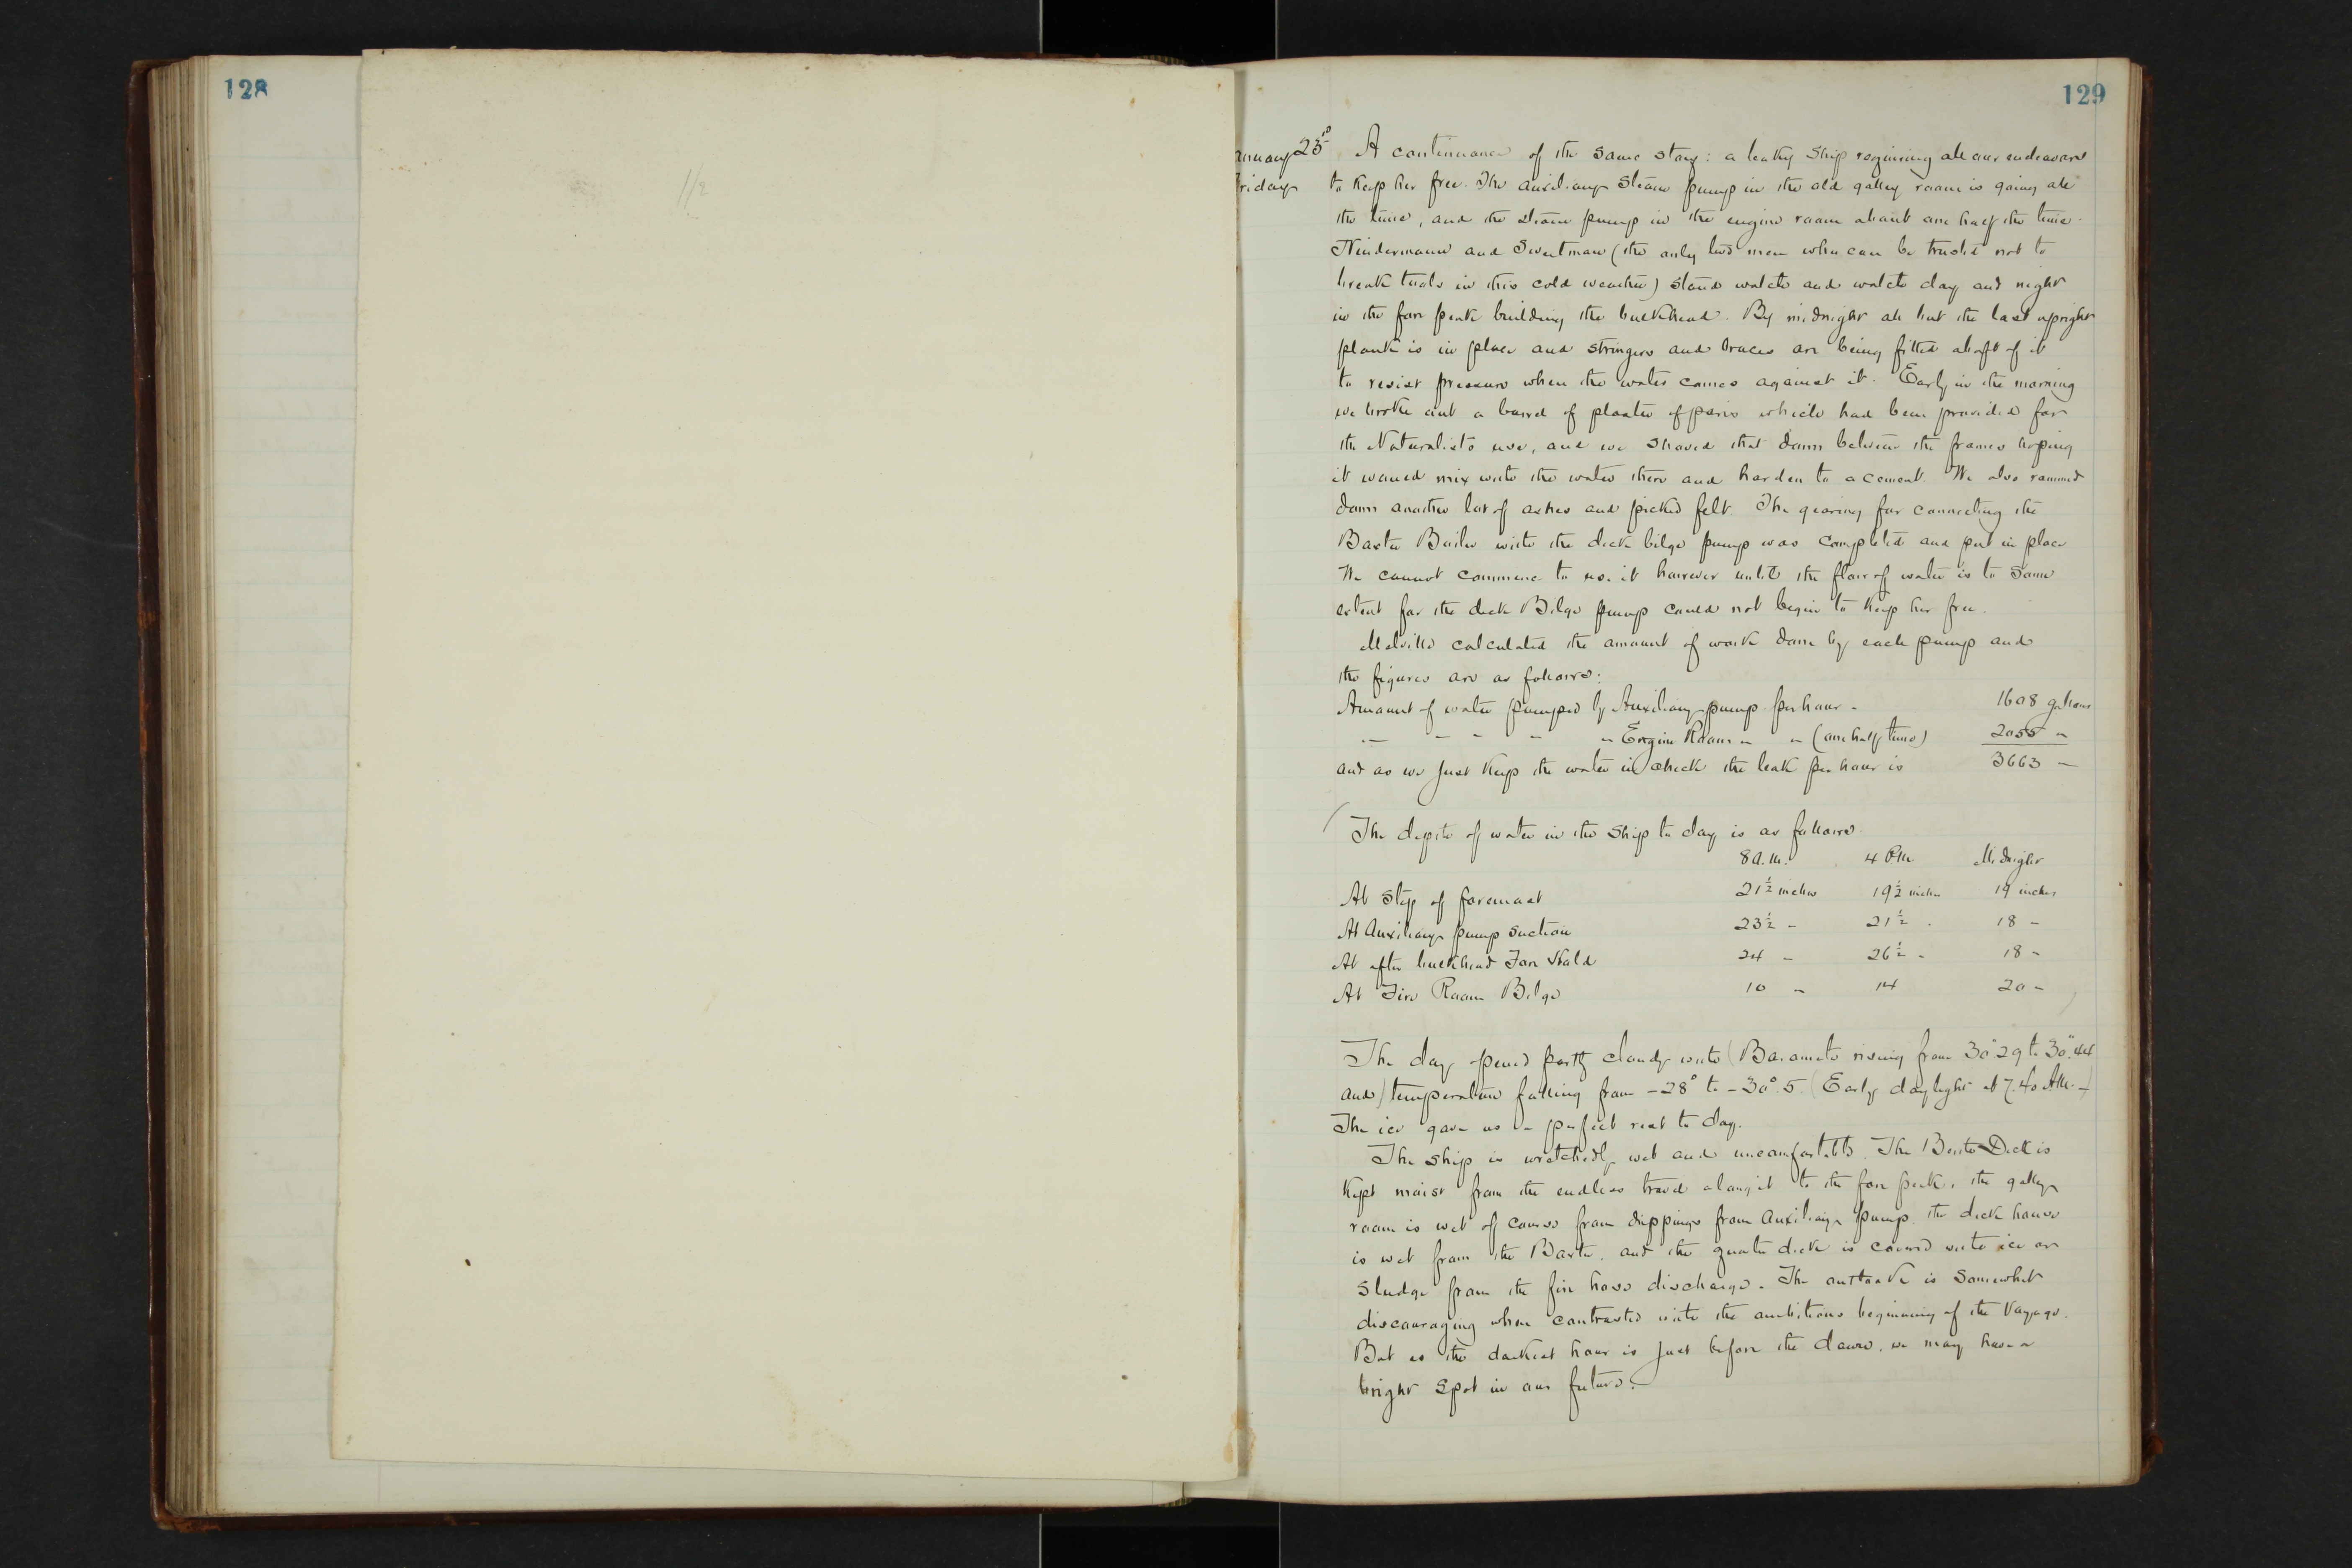 128
1/2
129
anuary 23rd A continuance of the same story: a leaky ship requiring all our endeavors
riday to keep her free. The auxiliary steam pump in the old galley room is going all
the time, and the steam pump in the engine room about one half the time.
Nindermann and Sweetman (the only two men who can be trusted not to
break tools in this cold weather) stand watch and watch day and night
in the fore peak building the bulkhead. By midnight all but the last upright
plank is in place and stringers and braces are being fitted abaft of it
to resist pressure when the water comes against it. Early in the morning
we broke out a barrel of plaster of paris which had been provided for
the Naturalist's use, and we shoved that down between the frames hoping
it would mix with the water there and harden to a cement. We also rammed
down another lot of ashes and picked felt. The gearing for connecting the
Baxter Boiler with the deck bilge pump was completed and put in place
We cannot commence to use it however until the flow of water is to some
extent for the deck Bilge pump could not begin to keep her free.
Melville calculated the amount of work done by each pump and
the figures are as follows:
Amount of water pumped by Auxiliary pump per hour - 1608 gallons
" - - - " Engine Room " " (one half time) 2055 "
and as we just keep the water in check the leak per hour is 3663 "
(The depth of water in the ship to day is as follows.
8 A.M. 4 P.M. Midnight
At step of foremast 21½ inches 19½ inches 19 inches
At Auxiliary pump suction 23½ " 21½ " 18 "
At after bulkhead Fore Hold 24 " 26½ " 18 "
At Fire Room Bilge 10 " 14 20 " )
The day opened partly cloudy with (Barometer rising from 30".29 to 30".44
and) temperature falling from -28° to -30°.5. (Early daylight at 7.40 A.M.)
The ice gave us a perfect rest to day.
The ship is wretchedly wet and uncomfortable. The Berth Deck is
kept moist from the endless travel along it to the fore peak, the galley
room is wet of course from drippings from Auxiliary pump, the deck house
is wet from the Baxter, and the quarter deck is covered with ice or
sludge from the fire hose discharge. The outlook is somewhat
discouraging when contrasted with the ambitious beginning of the Voyage.
But as the darkest hour is just before the dawn, we may have a
bright spot in our future.